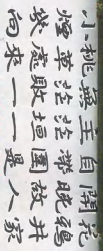 小桃無主自開花
煙草茫茫帶晚鴉
幾處敗垣圍故井
向來一一是人家